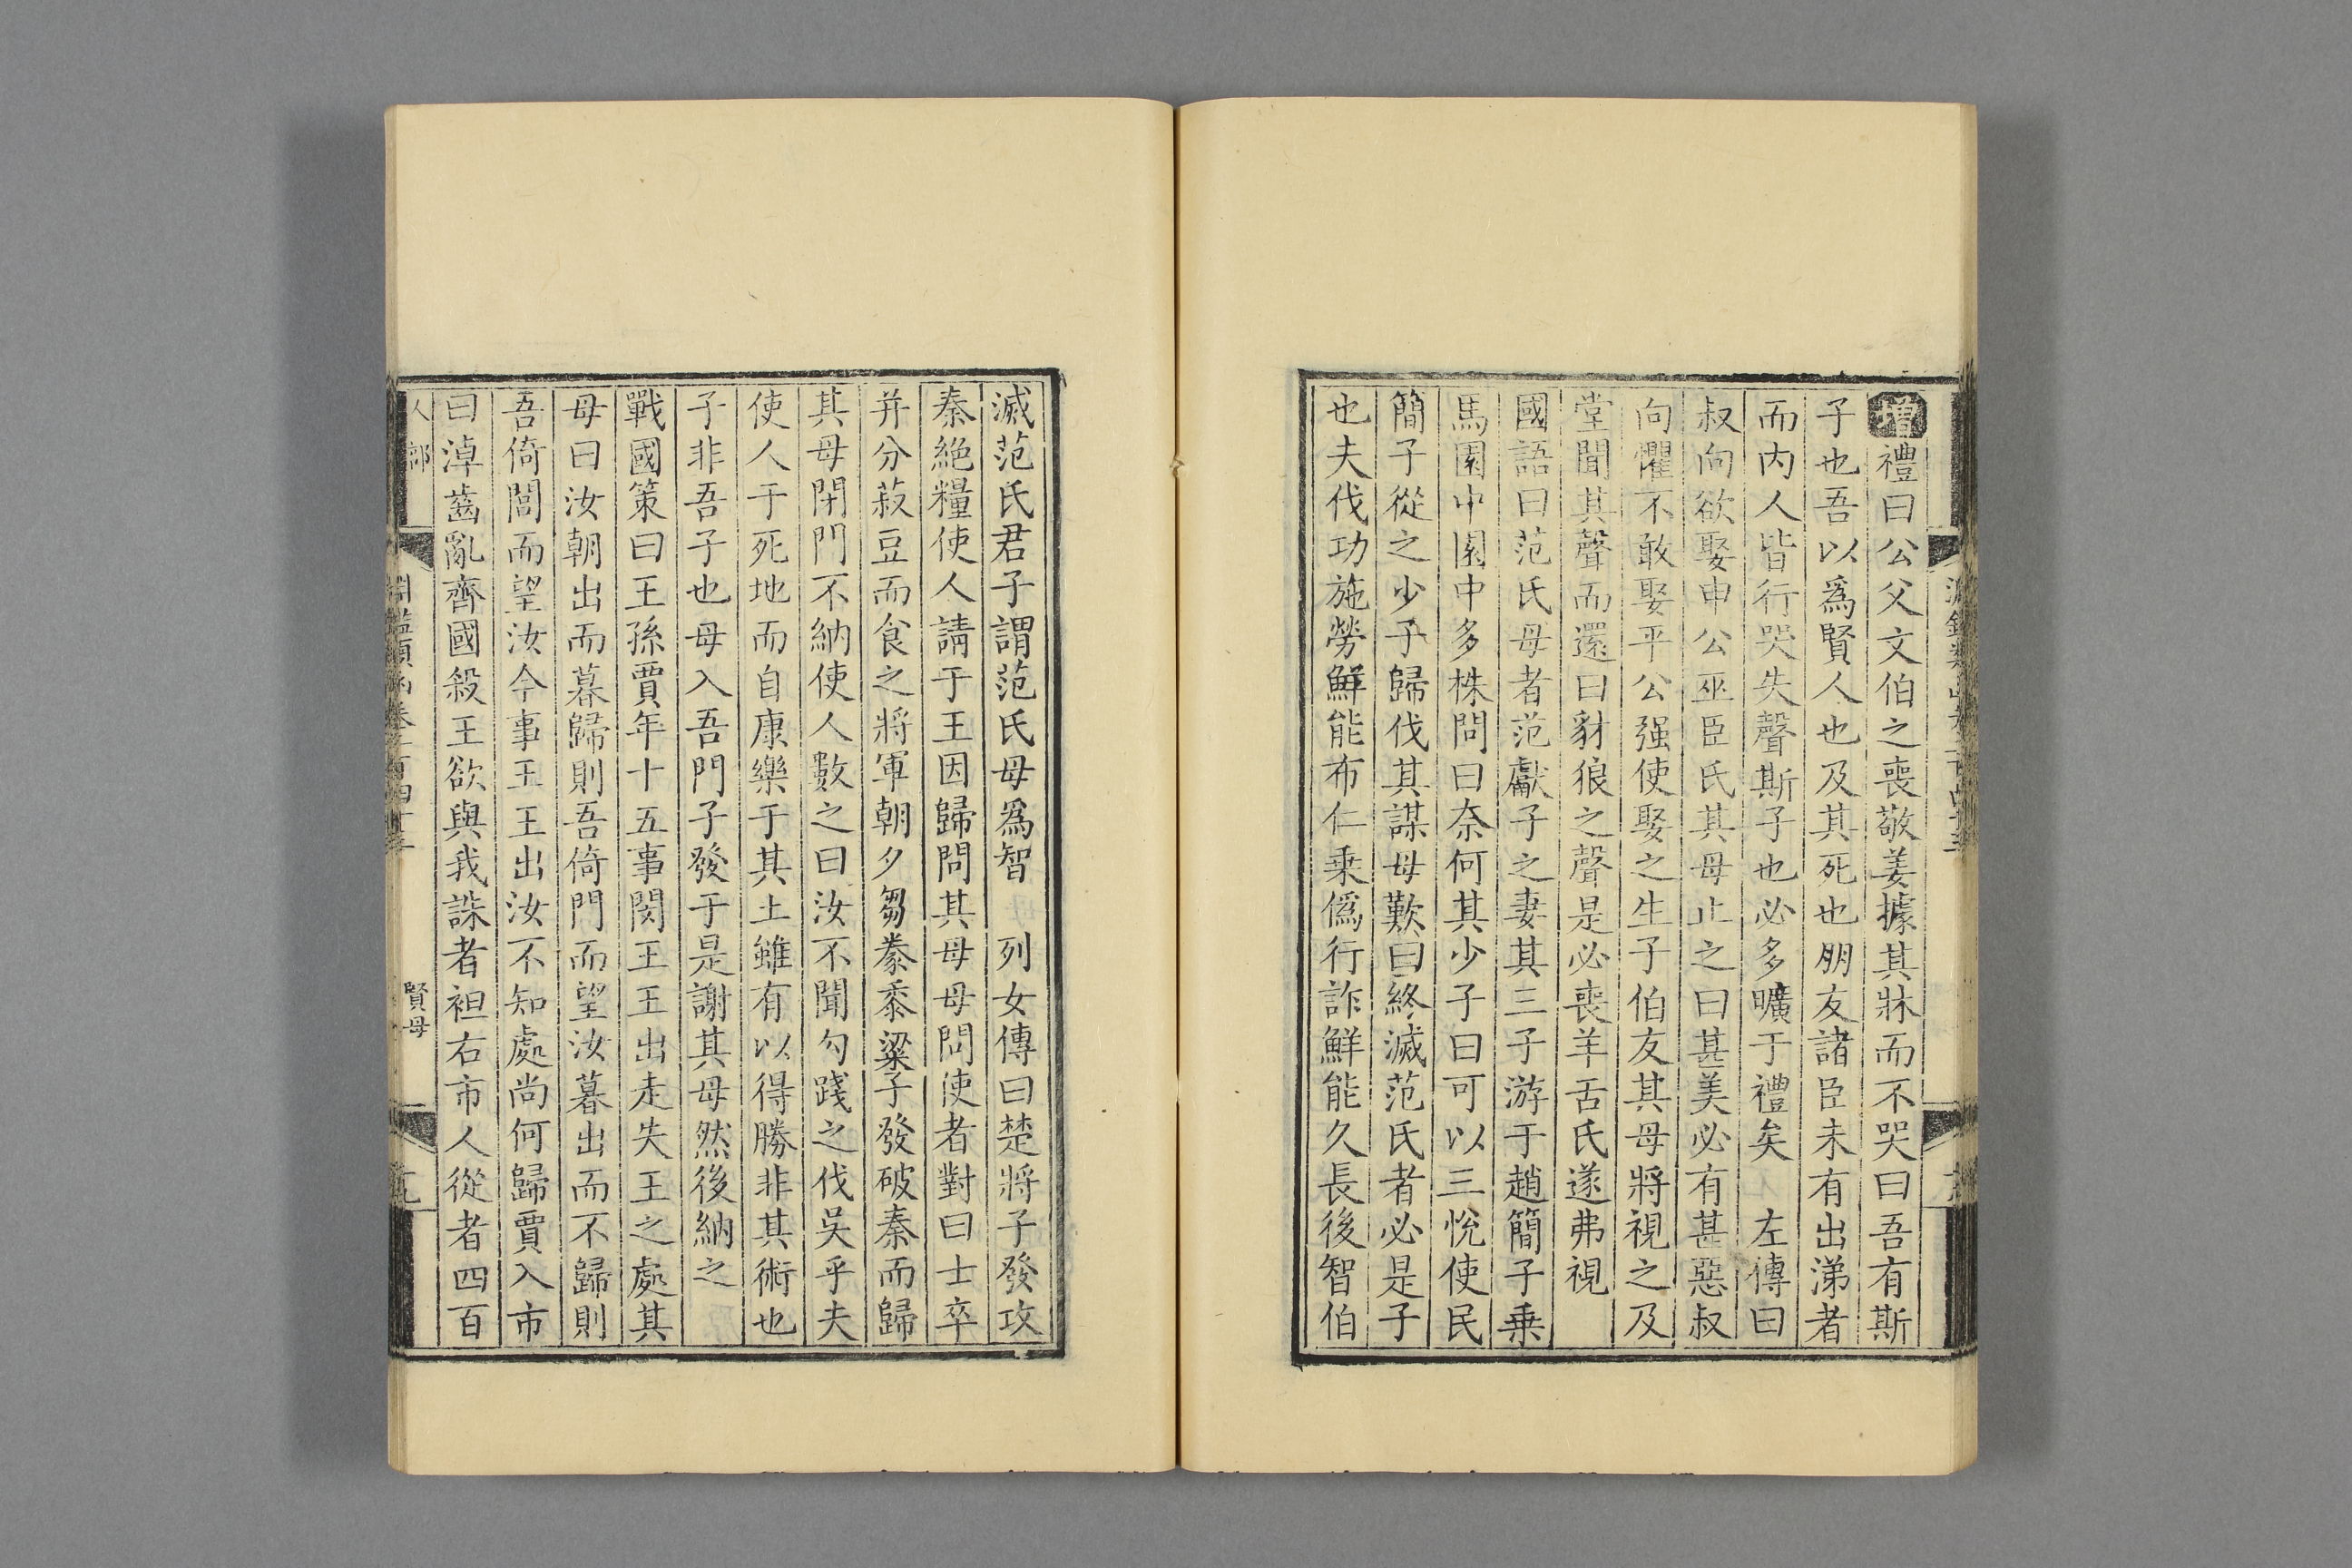 增禮曰公父文伯之喪敬姜據其牀而不哭曰吾有斯
子也吾以爲賢人也及其死也朋友諸臣未有出涕者
而内人皆行哭失聲斯子也必多曠于禮矣 左傳曰
叔向欲娶申公巫臣氏其母止之曰甚美必有甚惡叔
向懼不敢娶平公强使娶之生子伯友其母將視之及
堂聞其聲而還曰豺狼之聲是必喪羊舌氏遂弗視
國語曰范氏母者范獻子之妻其三子游于趙簡子乗
馬園中園中多株問曰奈何其少子曰可以三悅使民
簡子從之少子歸伐其謀母歎曰終滅范氏者必是子
也夫伐功施勞鮮能布仁乗僞行詐鮮能久長後智伯
滅范氏君子謂范氏母爲智 列女傳曰楚將子發攻
秦絶糧使人請于王因歸問其母母問使者對曰士卒
并分菽豆而食之將軍朝夕芻豢黍粱子發破秦而歸
其母閉門不納使人數之曰汝不聞勾踐之伐吳乎夫
使人于死地而自康樂于其上雖有以得勝非其術也
子非吾子也母入吾門子發于是謝其母然後納之
戰國策曰王孫賈年十五事閔王王出走失王之處其
母曰汝朝出而暮歸則吾倚門而望汝暮出而不歸則
吾倚閭而望汝今事王王出汝不知處尚何歸賈入市
曰淖齒亂齊國殺王欲與我誅者袒右市人從者四百
人部
淵鑑類函卷二百四十五
賢母